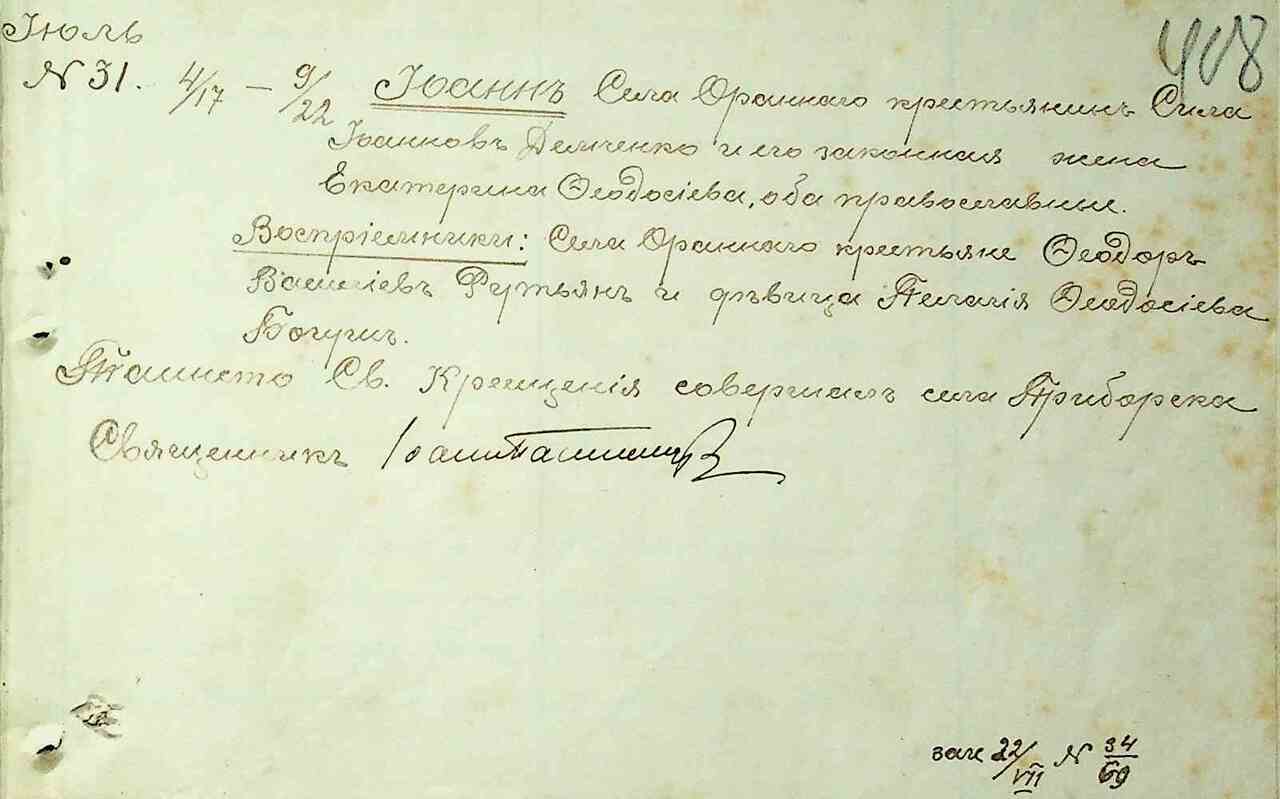 Іюль
408
N 31. 4/17 — 9/22 Іоаннъ Села Ораннаго крестьянинъ Сила
Іоанновъ Демченко и его законная жена
Екатерина Ѳеодосіева, оба православные.
Воспріемники: Села Ораннаго крестьяне Ѳеодоръ
Васильевъ Рутьянъ и дѣвица Пелагія Ѳеодосіева
Богуш.
Таинство Св. Крещенія совершалъ села Приборска
Священникъ
зак 22/VII N 34/69